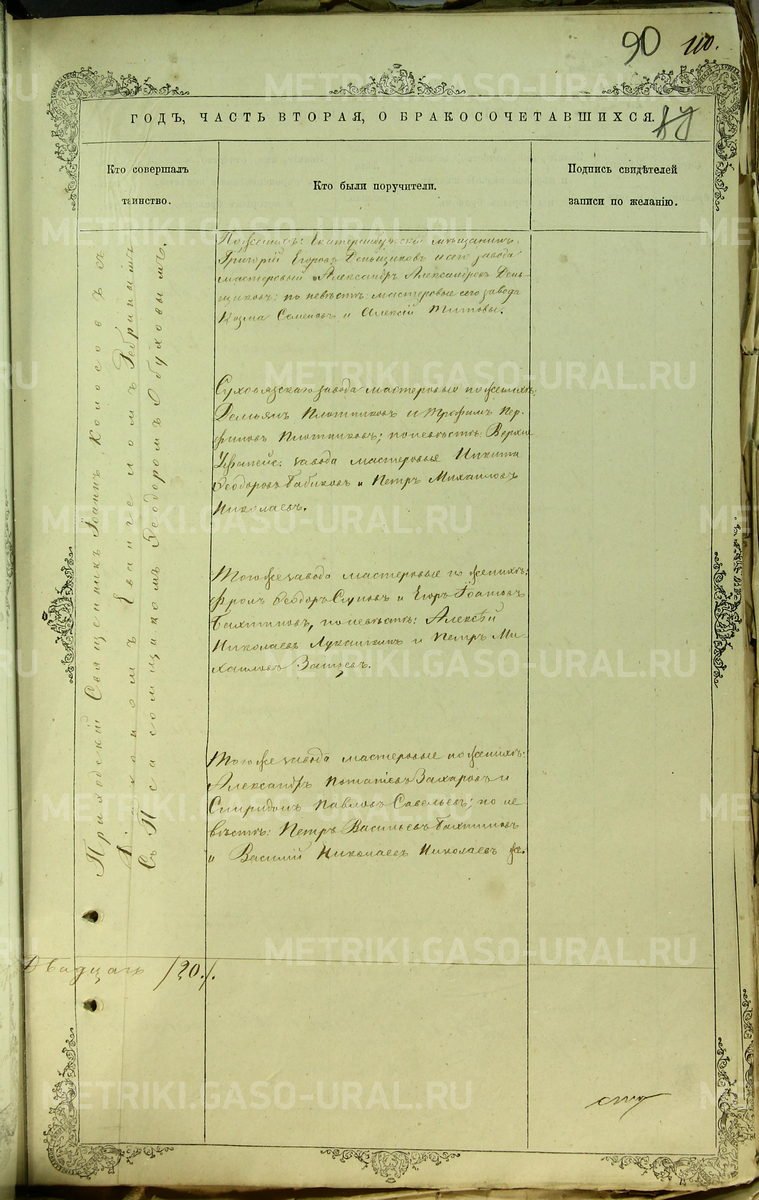 90 110.
ГОДЪ, ЧАСТЬ ВТОРАЯ, О БРАКОСОЧЕТАВШИХСЯ.
Кто совершалъ
таинство.
Кто были поручители.
Подпись свидѣтелей
записи по желанію.
Приходскій Священникъ Іоаннъ Колосовъ съ
Съ Псаломщикомъ Ѳеодоромъ Обуховымъ.
По женихѣ: Екатеринбургскій мѣщанинъ
Григорій Егоровъ Деньщиковъ и сего завода
мастеровый Александръ Александровъ День-
щиковъ: по невѣстѣ мастеровые сего завода
Козма Семеновъ и Алексѣй Титовы.
завода мастеровые по женихѣ,
Демьянъ Плотниковъ и Трофимъ
Плотниковъ; по невѣстѣ: Верхне
Уфалейс: завода мастеровые Никита
Ѳеодоровъ Бабиковъ и Петръ Михаиловъ
Николаевъ.
Того же завода мастеровые по женихѣ:
Фролъ Ѳеодоръ и Егоръ
по невѣстѣ: Алексѣй
Николаевъ Лукашинъ и Петръ Ми-
хаиловъ Зайцевъ.
Того же завода мастеровые по женихѣ:
Александръ Захаровъ и
Спиридонъ Павловъ Савельевъ; по не
вѣстѣ: Петръ Васильевъ
и Василій Николаевъ Николаевъ же.
Двадцать /20./.
METRIKI.GASO-URAL.RU